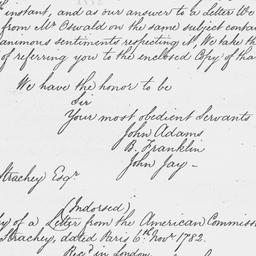 instant, and as our answer to a Letter We
from Mr Oswald on the same subject contai
animous sentiments respecting it, We take th
of referring you to the enclosed Copy of tha
We have the honor to be
Sir
Your most obedient Servants
John Adams
B. Franklin
John Jay—
trachey Esqr
(Endorsed)
y of a Letter from the American Commiss
trachey, dated Paris 6th Novr 1782.
Rec'd in London